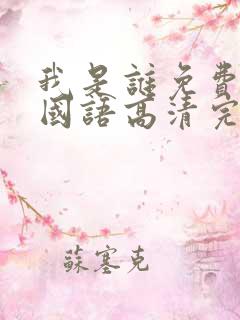 我是誰免費
國語高清完
蘇塞克